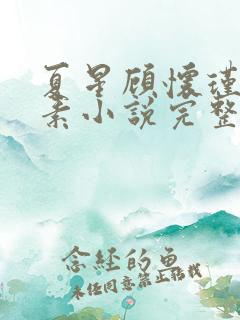 夏星顾怀瑾
素小说完整
念经的鱼
未经同意禁止转载